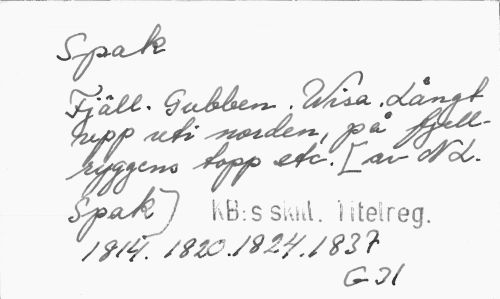 Spak
Fjäll-Gubben. Wisa. Långt
upp uti norden, på fjell-
ryggens topp etc. [av N L.
Spak]
KB:s skill. Titelreg.
1814. 1820. 1824. 1837